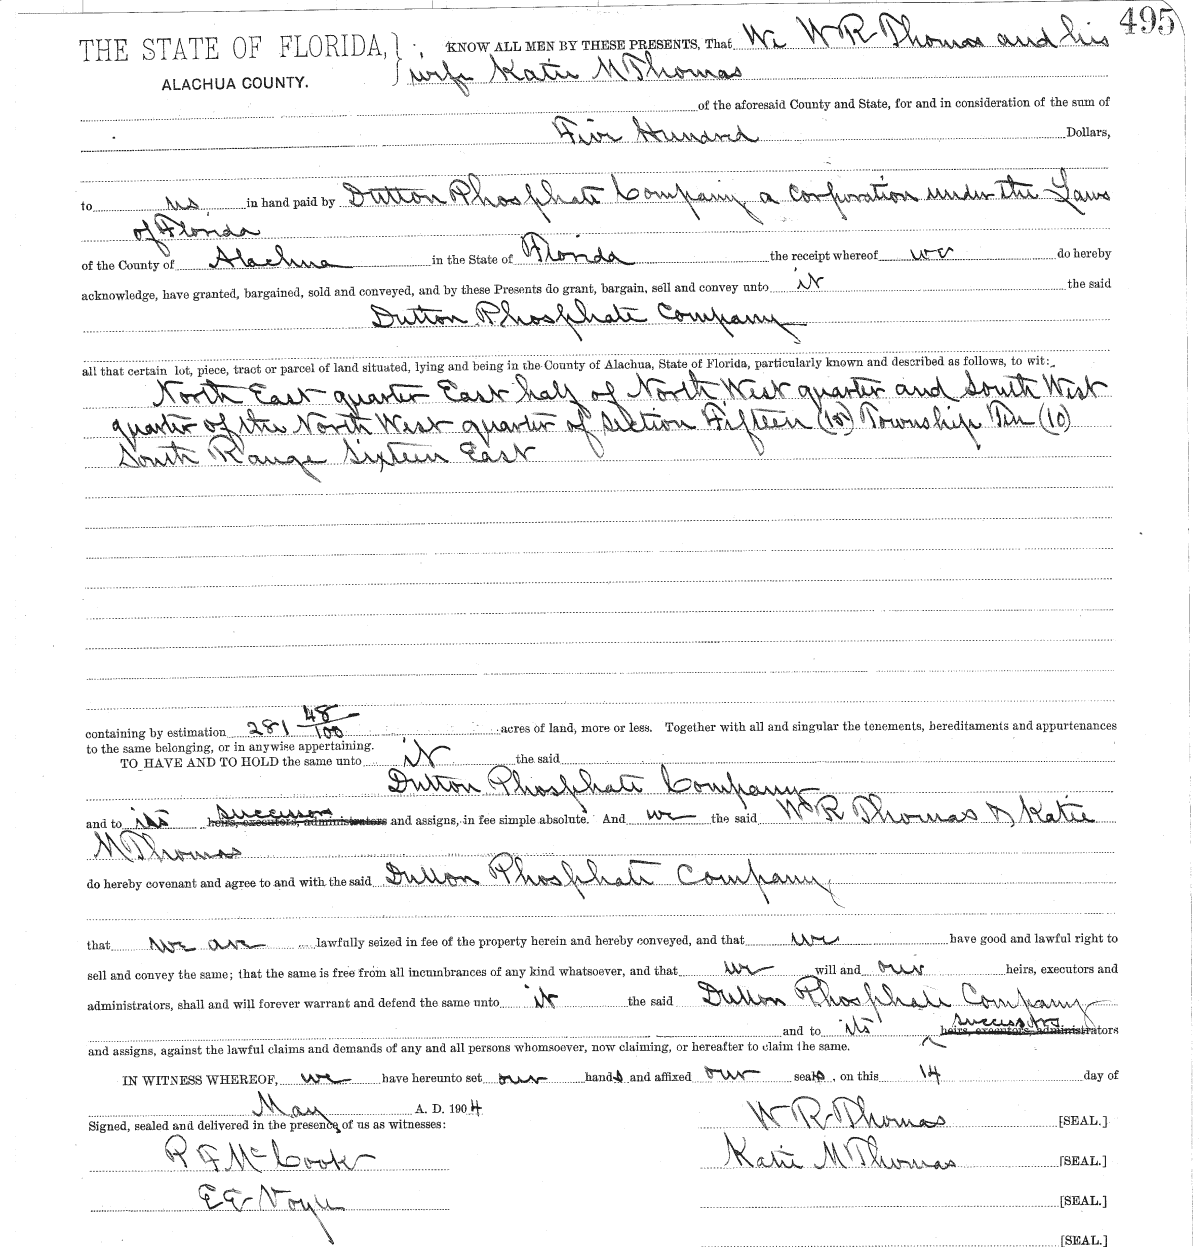 495
THE STATE OF FLORIDA, } KNOW ALL MEN BY THESE PRESENTS, That We W R Thomas and his
ALACHUA COUNTY. wife Katie M Thomas
of the aforesaid County and State, for and in consideration of the sum of
Five Hundred Dollars,
to us in hand paid by Dutton Phosphate Company a Corporation under the Laws
of Florida
of the County of Alachua in the State of Florida the receipt whereof we do hereby
acknowledge, have granted, bargained, sold and conveyed, and by these Presents do grant, bargain, sell and convey unto it the said
Dutton Phosphate Company
all that certain lot, piece, tract or parcel of land situated, lying and being in the County of Alachua, State of Florida, particularly known and described as follows, to wit:
North East quarter East half of North West quarter and South West
quarter of the North West quarter of Section Fifteen (15) Township Ten (10)
South Range Sixteen East
containing by estimation 281 48/100 acres of land, more or less. Together with all and singular the tenements, hereditaments and appurtenances
to the same belonging, or in anywise appertaining.
TO HAVE AND TO HOLD the same unto it the said
Dutton Phosphate Company
and to its successors heirs, executors, administrators and assigns, in fee simple absolute. And we the said W R Thomas & Katie
M Thomas
do hereby covenant and agree to and with the said Dutton Phosphate Company
that we are lawfully seized in fee of the property herein and hereby conveyed, and that we have good and lawful right to
sell and convey the same; that the same is free from all incumbrances of any kind whatsoever, and that we will and our heirs, executors and
administrators, shall and will forever warrant and defend the same unto it the said Dutton Phosphate Company
and to its successors heirs, executors, administrators
and assigns, against the lawful claims and demands of any and all persons whomsoever, now claiming, or hereafter to claim the same.
IN WITNESS WHEREOF, we have hereunto set our hands and affixed our seals, on this 14 day of
May A. D. 1904
Signed, sealed and delivered in the presence of us as witnesses: W R Thomas [SEAL.]
R F McCook Katie M Thomas [SEAL.]
E E Voyle [SEAL.]
[SEAL.]